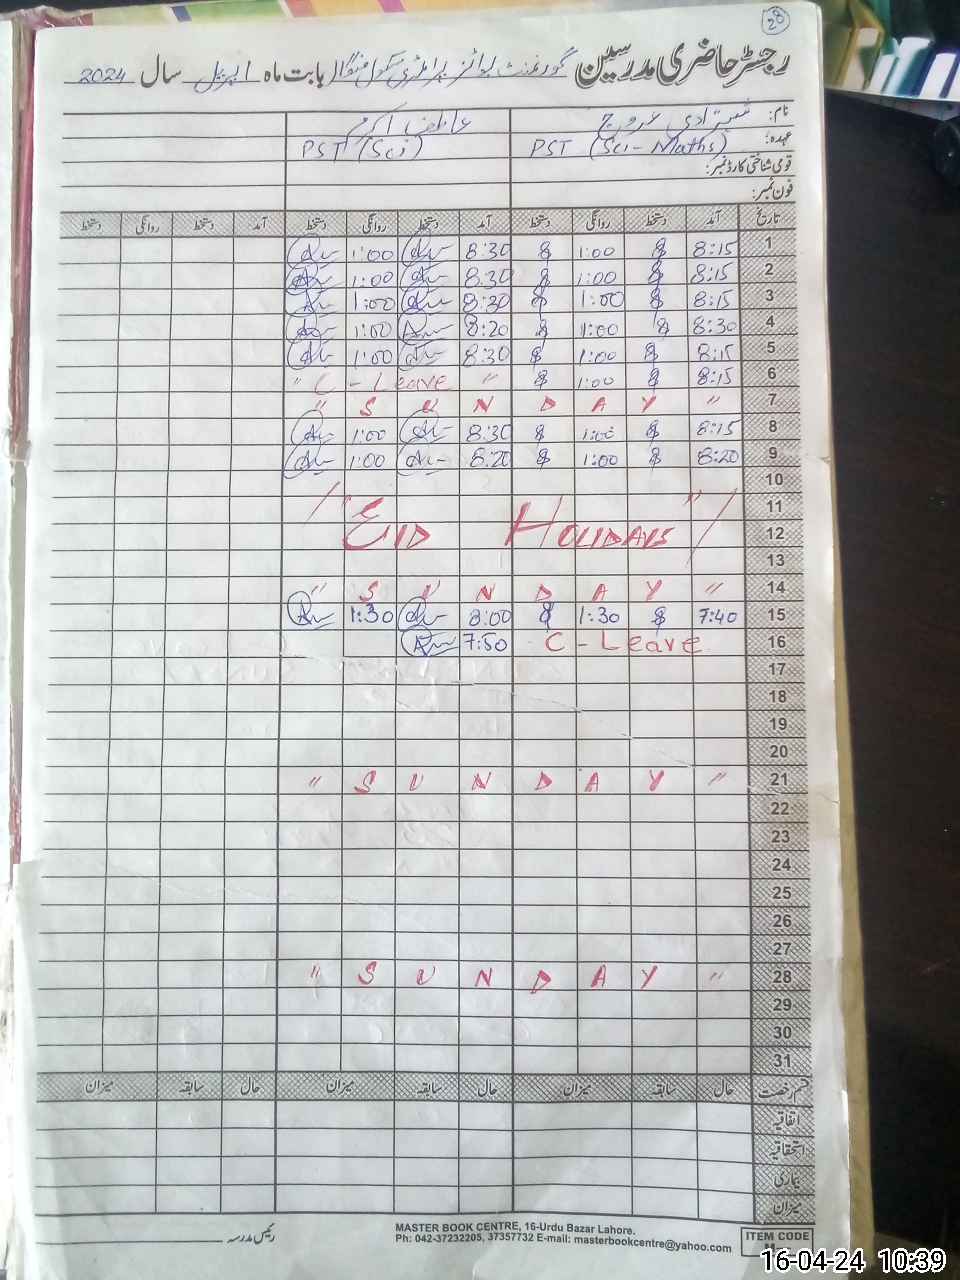 28
رجسٹر حاضری مدرسین گورنمنٹ بوائز پرائمری سکول منگا بابت ماہ اپریل سال 2024
نام: شہزادی عروج عاطف اکرم
عہدہ: PST (Sci - Maths) PST (Sci)
قومی شناختی کارڈ نمبر:
فون نمبر:
تاریخ آمد دستخط روانگی دستخط آمد دستخط روانگی دستخط آمد دستخط روانگی دستخط
1 8:15 1:00 8:30 1:00
2 8:15 1:00 8:30 1:00
3 8:15 1:00 8:30 1:00
4 8:30 1:00 8:20 1:00
5 8:15 1:00 8:30 1:00
6 8:15 1:00 " C - Leave "
7 " S U N D A Y "
8 8:15 1:00 8:30 1:00
9 8:20 1:00 8:20 1:00
10
11
12 "EID HOLIDAYS"
13
14 " S U N D A Y "
15 7:40 1:30 8:00 1:30
16 C - Leave 7:50
17
18
19
20
21 " S U N D A Y "
22
23
24
25
26
27
28 " S U N D A Y "
29
30
31
قسم رخصت حال سابقہ میزان حال سابقہ میزان حال سابقہ میزان
اتفاقیہ
استحقاقیہ
بیماری
میزان
رئیس مدرسہ
MASTER BOOK CENTRE, 16-Urdu Bazar Lahore.
Ph: 042-37232205, 37357732 E-mail: masterbookcentre@yahoo.com
ITEM CODE
16-04-24 10:39